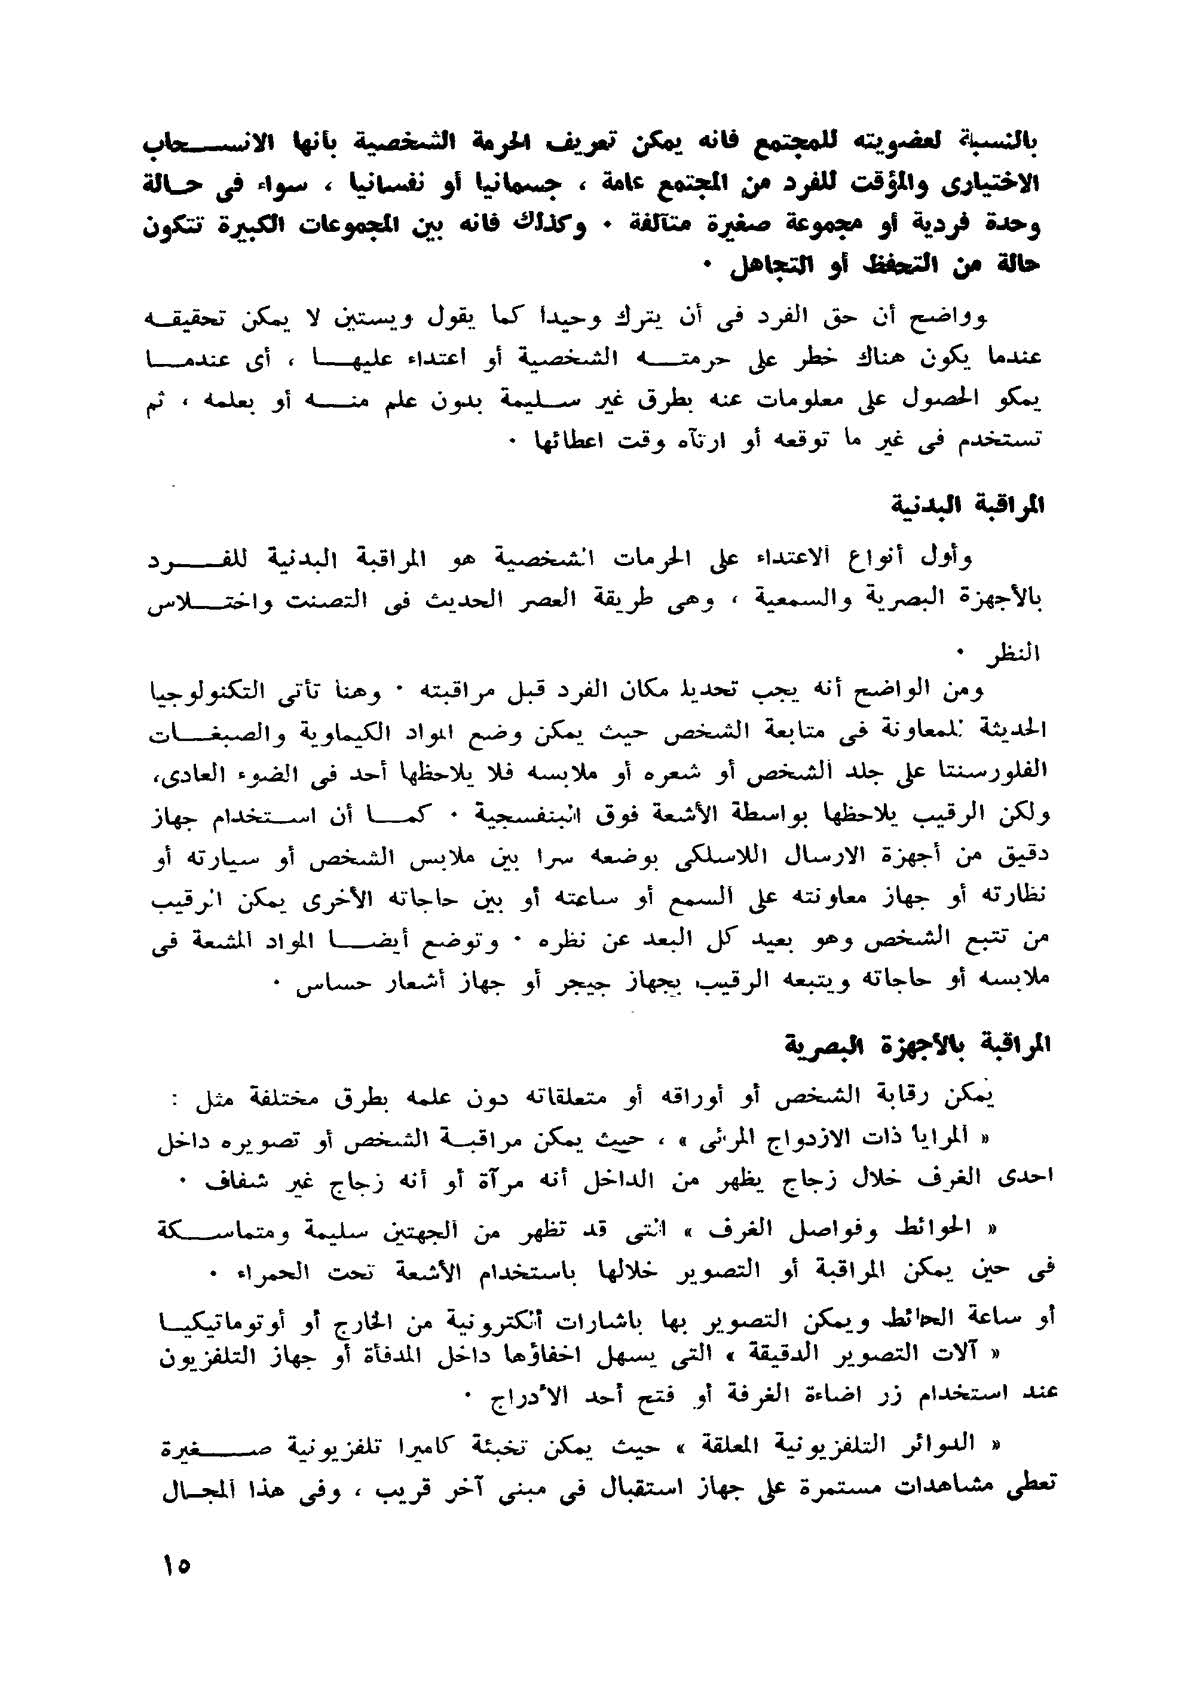 بالنسبة لعضويته للمجتمع فانه يمكن تعريف الحرمة الشخصية بأنها الانسحاب
الاختيارى والمؤقت للفرد من المجتمع عامة ، جسمانيا أو نفسانيا ، سواء فى حالة
وحدة فردية أو مجموعة صغيرة متآلفة . وكذلك فانه بين المجموعات الكبيرة تتكون
حالة من التحفظ أو التجاهل .
وواضح أن حق الفرد فى أن يترك وحيدا كما يقول ويستين لا يمكن تحقيقه
عندما يكون هناك خطر على حرمته الشخصية أو اعتداء عليها ، أى عندما
يمكو الحصول على معلومات عنه بطرق غير سليمة بدون علم منه أو بعلمه ، ثم
تستخدم فى غير ما توقعه أو ارتآه وقت اعطائها .
المراقبة البدنية
وأول أنواع الاعتداء على الحرمات الشخصية هو المراقبة البدنية للفرد
بالأجهزة البصرية والسمعية ، وهى طريقة العصر الحديث فى التصنت واختلاس
النظر .
ومن الواضح أنه يجب تحديد مكان الفرد قبل مراقبته . وهنا تأتى التكنولوجيا
الحديثة للمعاونة فى متابعة الشخص حيث يمكن وضع المواد الكيماوية والصبغات
الفلورسنتا على جلد الشخص أو شعره أو ملابسه فلا يلاحظها أحد فى الضوء العادى،
ولكن الرقيب يلاحظها بواسطة الأشعة فوق البنفسجية . كما أن استخدام جهاز
دقيق من أجهزة الارسال اللاسلكى بوضعه سرا بين ملابس الشخص أو سيارته أو
نظارته أو جهاز معاونته على السمع أو ساعته أو بين حاجاته الأخرى يمكن الرقيب
من تتبع الشخص وهو بعيد كل البعد عن نظره . وتوضع أيضا المواد المشعة فى
ملابسه أو حاجاته ويتبعه الرقيب بجهاز جيجر أو جهاز أشعار حساس .
المراقبة بالأجهزة البصرية
يمكن رقابة الشخص أو أوراقه أو متعلقاته دون علمه بطرق مختلفة مثل :
« المرايا ذات الازدواج المرئى » ، حيث يمكن مراقبة الشخص أو تصويره داخل
احدى الغرف خلال زجاج يظهر من الداخل أنه مرآة أو أنه زجاج غير شفاف .
« الحوائط وفواصل الغرف » التى قد تظهر من الجهتين سليمة ومتماسكة
فى حين يمكن المراقبة أو التصوير خلالها باستخدام الأشعة تحت الحمراء .
أو ساعة الحائط ويمكن التصوير بها باشارات ألكترونية من الخارج أو أوتوماتيكيا
« آلات التصوير الدقيقة » التى يسهل اخفاؤها داخل المدفأة أو جهاز التلفزيون
عند استخدام زر اضاءة الغرفة أو فتح أحد الأدراج .
« الدوائر التلفزيونية المعلقة » حيث يمكن تخبئة كاميرا تلفزيونية صغيرة
تعطى مشاهدات مستمرة على جهاز استقبال فى مبنى آخر قريب ، وفى هذا المجال
١٥